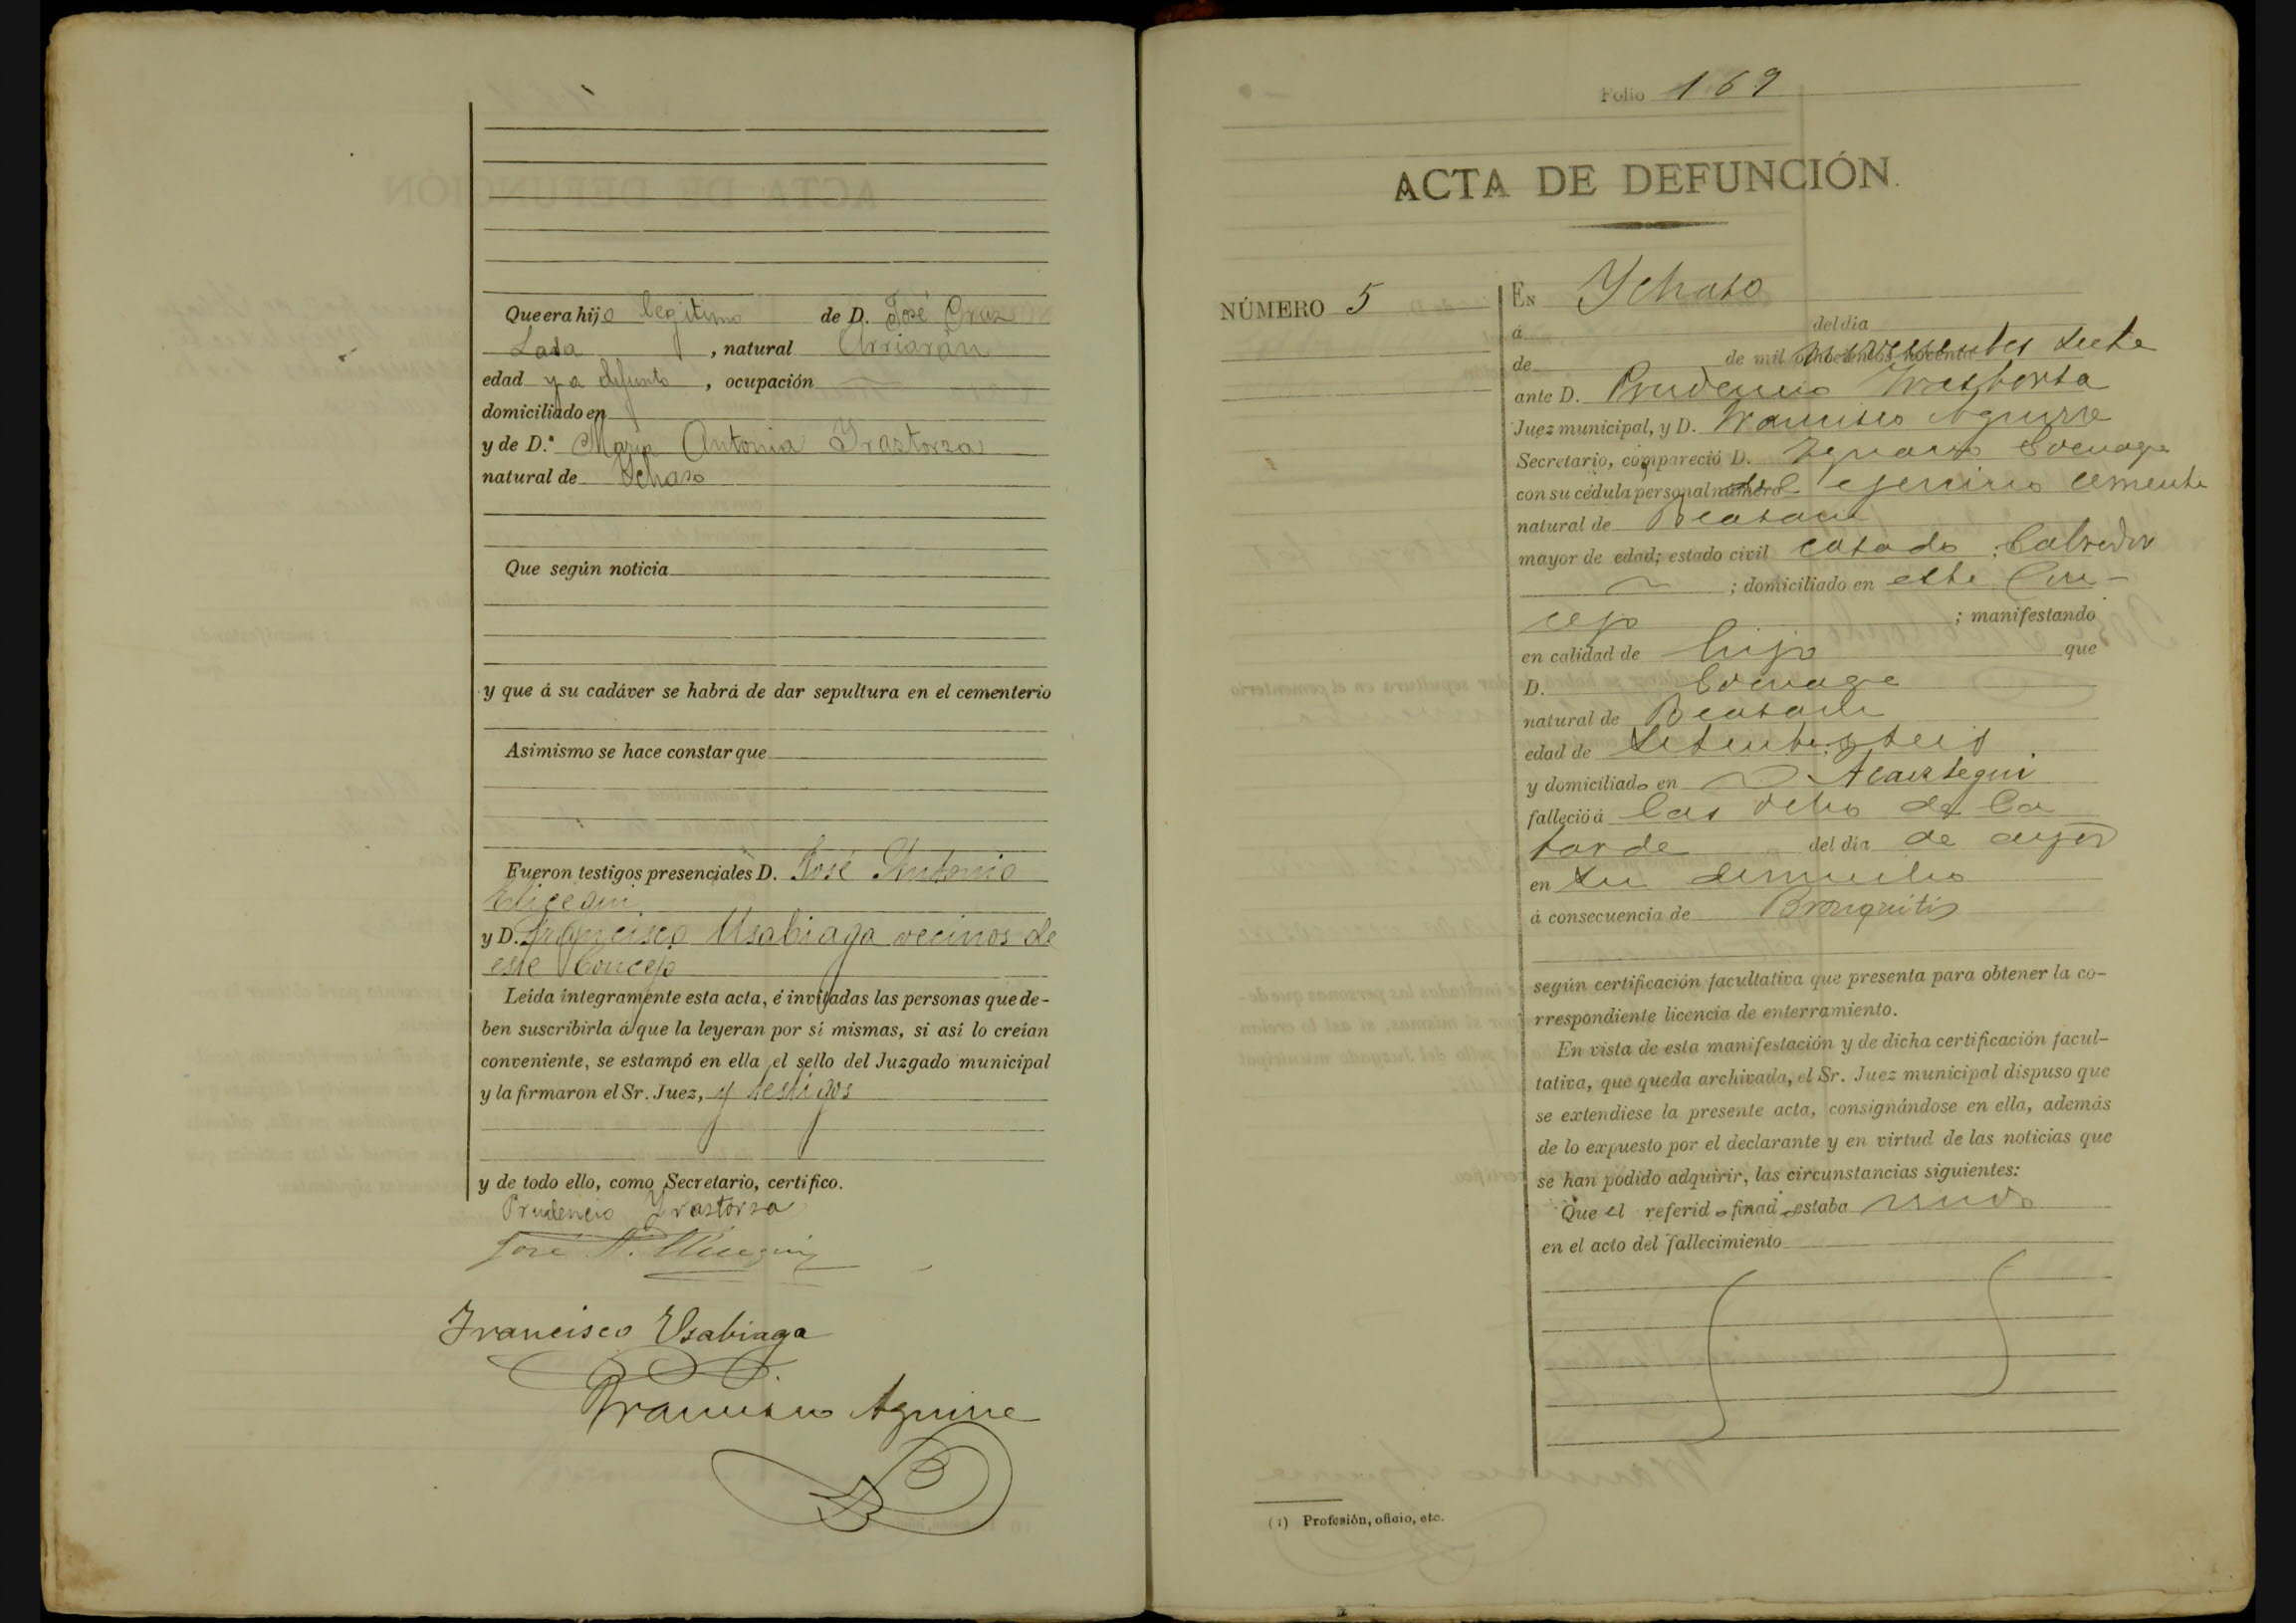 Que era hijo legitimo de D. José Cruz
Lasa, natural Arriarán
edad ya difunto, ocupación
domiciliado en
y de D.ª María Antonia Yrastorza
natural de Ychaso
Que según noticia
y que á su cadáver se habrá de dar sepultura en el cementerio
Asimismo se hace constar que
Fueron testigos presenciales D. José Antonio
Elicegui
y D. Francisco Usabiaga vecinos de
este Concejo
Leída íntegramente esta acta, é invitadas las personas que de-
ben suscribirla á que la leyeran por sí mismas, si así lo creían
conveniente, se estampó en ella el sello del Juzgado municipal
y la firmaron el Sr. Juez, y testigos
y de todo ello, como Secretario, certifico.
Prudencio Yrastorza
José A. Elicegui
Francisco Usabiaga
Francisco Aguirre
Folio 169
ACTA DE DEFUNCIÓN.
NÚMERO 5
En Ychaso
á del dia
de de mil novecientos siete
ante D. Prudencio Yrastorza
Juez municipal, y D. Francisco Aguirre
Secretario, compareció D. Ignacio
con su cédula personal del ejercicio
natural de Beasain
mayor de edad; estado civil casado; labrador
; domiciliado en este Con-
cejo ; manifestando
en calidad de hijo que
D.
natural de Beasain
edad de setenta y seis
y domiciliado en
falleció á las ocho de la
tarde del dia de ayer
en su domicilio
á consecuencia de Bronquitis
según certificación facultativa que presenta para obtener la co-
rrespondiente licencia de enterramiento.
En vista de esta manifestación y de dicha certificación facul-
tativa, que queda archivada, el Sr. Juez municipal dispuso que
se extendiese la presente acta, consignándose en ella, además
de lo expuesto por el declarante y en virtud de las noticias que
se han podido adquirir, las circunstancias siguientes:
Que el referido finado estaba viudo
en el acto del fallecimiento
(1) Profesión, oficio, etc.